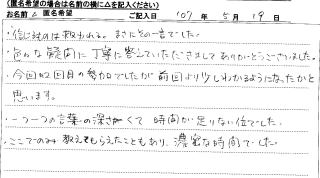 (匿名希望の場合は名前の横に△を記入ください)
お名前 △ 匿名希望 ご記入日 '07 年 5月 19日
・信じるものは救われる。まさにその一言でした。
・色々な疑問に丁寧に答えていただきましてありがとうございました。
・今回は2回目の参加でしたが前回より少しわかるようになったかと
思います。
・一つ一つの言葉の深さが 時間が足りない位でした。
・ここでのみ教えてもらえたこともあり、濃密な時間でした。